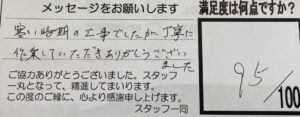 メッセージをお願いします
満足度は何点ですか?
寒い時期の工事でしたが、丁寧に
作業していただきありがとうござい
ました
95
/100
ご協力ありがとうございました。スタッフ
一丸となって、精進してまいります。
この度のご縁に、心より感謝申し上げます。
スタッフ一同